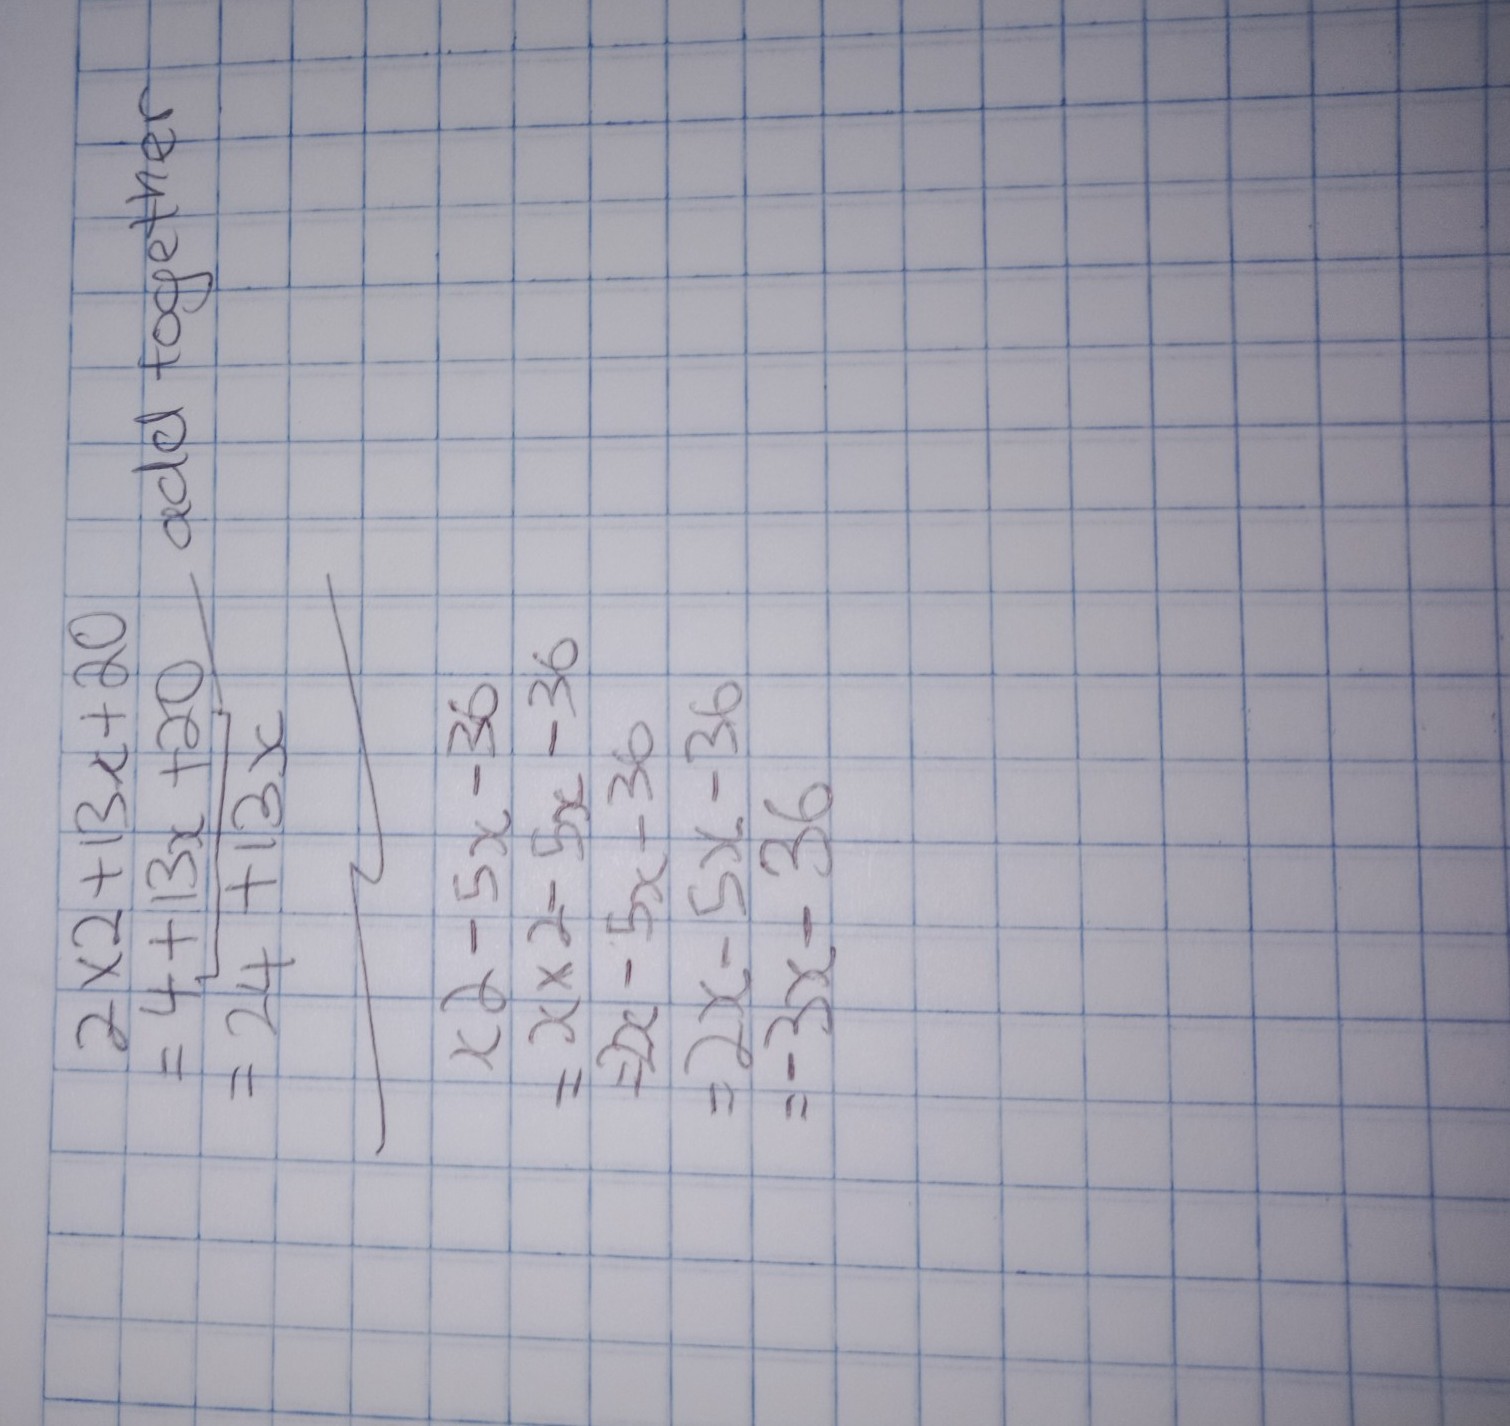 2x2+13x+20
=4+13x+20 add together
=24+13x
x2-5x-36
=x×2-5x-36
=2x-5x-36
=2x-5x-36
=-3x-36